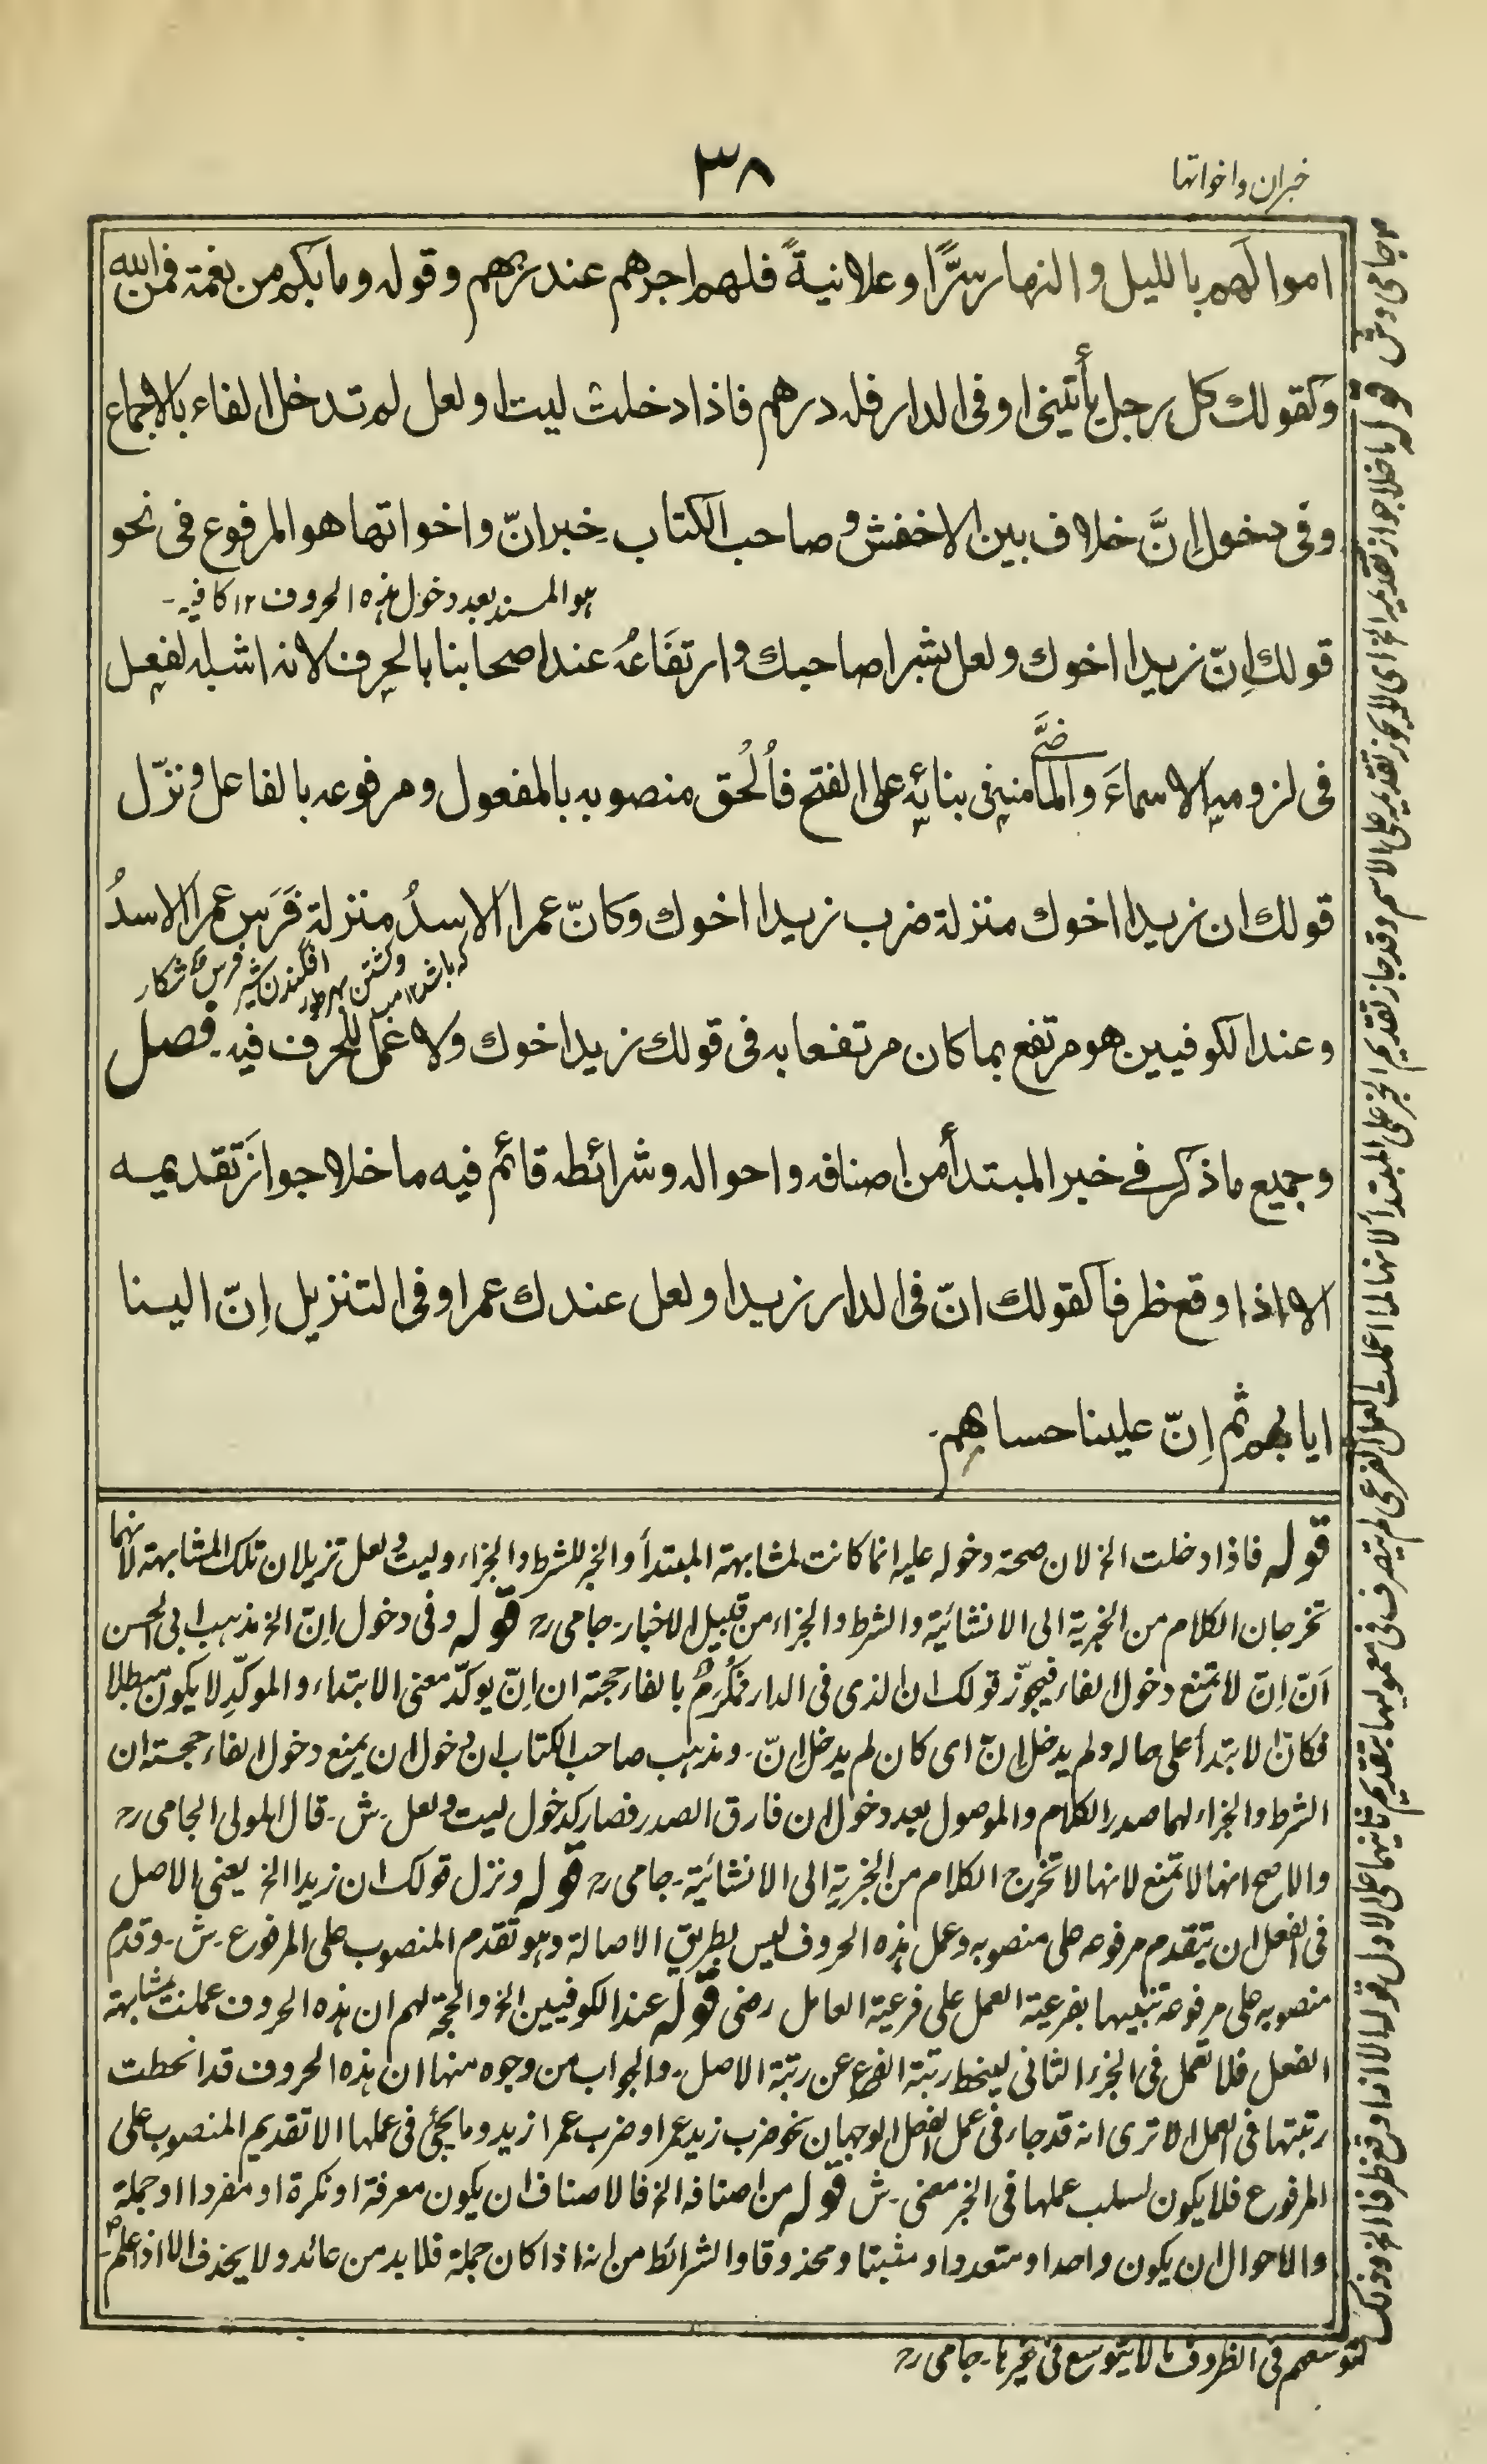 خبر ان واخواتها
٣٨
اموالهم بالليل والنهار سرًّا وعلانيةً فلهم اجرهم عند ربهم وقوله وما بكم من نعمة فمن الله
وكقولك كل رجل يأتيني او فى الدار فله درهم فاذا دخلت ليت او لعل لم تدخل الفاء بالاجماع
وفى دخول اِنَّ خلاف بين الاخفش وصاحب الكتاب خبر انّ واخواتها هو المرفوع فى نحو
هو المسند بعد دخول هذه الحروف ١٢ كافيه-
قولك اِنّ زيدا اخوك ولعل بشرا صاحبك وارتفاعُه عند اصحابنا بالحرف لانه اشبه لفعل
فى لزومه الاسماءَ والماضى منه فى بنائه على الفتح فاُلْحق منصوبه بالمفعول ومرفوعه بالفاعل ونزّل
قولك ان زيدا اخوك منزلة ضرب زيدا اخوك وكانّ عمرا الاسدُ منزلة فَرَس عمرا الاسدُ
فرس شكار افگندن شير وكشتن بهر طور كه باشد ١٢
وعند الكوفيين هو مرتفع بما كان مرتفعا به فى قولك زيد اخوك ولا عمل للحرف فيه. فصل
وجميع ما ذكر فے خبر المبتدأ من اصنافه واحواله وشرائطه قائم فيه ما خلا جواز تقديمه
الا اذا وقع ظرفا كقولك انّ فى الدار زيدا ولعل عندك عمرا وفى التنزيل اِنّ الينا
ايابهم ثم اِنّ علينا حسابهم.
قوله فاذا دخلت الخ لان صحة دخوله عليه انما كانت لمشابهة المبتدأ والخبر للشرط والجزاء وليت ولعل تزيلان تلك المشابهة لانهما
تخرجان الكلام من الخبرية الى الانشائية والشرط والجزاء من قبيل الاخبار- جامى رح قوله وفى دخول اِنّ الخ مذهب ابى الحسن
اَنّ اِنّ لا تمنع دخول الفاء فيجوّز قولك ان الذى فى الدار فمُكْرَمٌ بالفاء حجته ان اِنّ يوكّد معنى الابتداء والموكّدِ لا يكون مبطلا
فكانّ الابتدأ على حاله ولم يدخل اِنّ اى كان لم يدخل اِنّ- ومذهب صاحب الكتاب ان دخول ان يمنع دخول الفاء حجته ان
الشرط والجزاء لهما صدر الكلام والموصول بعد دخول ان فارق الصدر فصار كدخول ليت ولعل- ش- قال المولى الجامى رح
والاصح انها لا تمنع لانها لا تخرج الكلام من الخبرية الى الانشائية- جامى رح قوله ونزل قولك ان زيدا الخ يعنى الاصل
فى الفعل ان يتقدم مرفوعه على منصوبه وعمل هذه الحروف ليس بطريق الاصالة وهو تقدم المنصوب على المرفوع- ش- وقدم
منصوبه على مرفوعه تنبيها بفرعية العمل على فرعية العامل رضى قوله عند الكوفيين الخ والحجة لهم ان هذه الحروف عملت بمشابهة
الفعل فلا تعمل فى الجزء الثانى لينحط رتبة الفرع عن رتبة الاصل- والجواب من وجوه منها ان هذه الحروف قد انحطت
رتبتها فى العمل الا ترى انه قد جاء فى عمل الفعل الوجهان نحو ضرب زيد عمرا وضرب عمرا زيد وما يجئ فى عملها الا تقديم المنصوب على
المرفوع فلا يكون لسلب عملها فى الخبر معنى- ش قوله من اصنافه الخ فالاصناف ان يكون معرفة او نكرة او مفردا او جملة
والاحوال ان يكون واحدا ومتعددا ومثبتا ومحذوفا والشرائط من انه اذا كان جملة فلا بد من عائد ولا يحذف الا اذا علم
جامى وش قوله ما خلا جواز تقديمه الخ اى لا يجوز تقديمه على الاسم وقد جاز تقديم الخبر على المبتدأ لانها لما اعملت العمل الفرعى لم يتصرف فى معموليها بتقديم ثانيهما على الاول قوله الا اذا وقع ظرفا الخ وذلك
لتوسعهم فى الظروف ما لا يتوسع فى غيرها- جامى رح